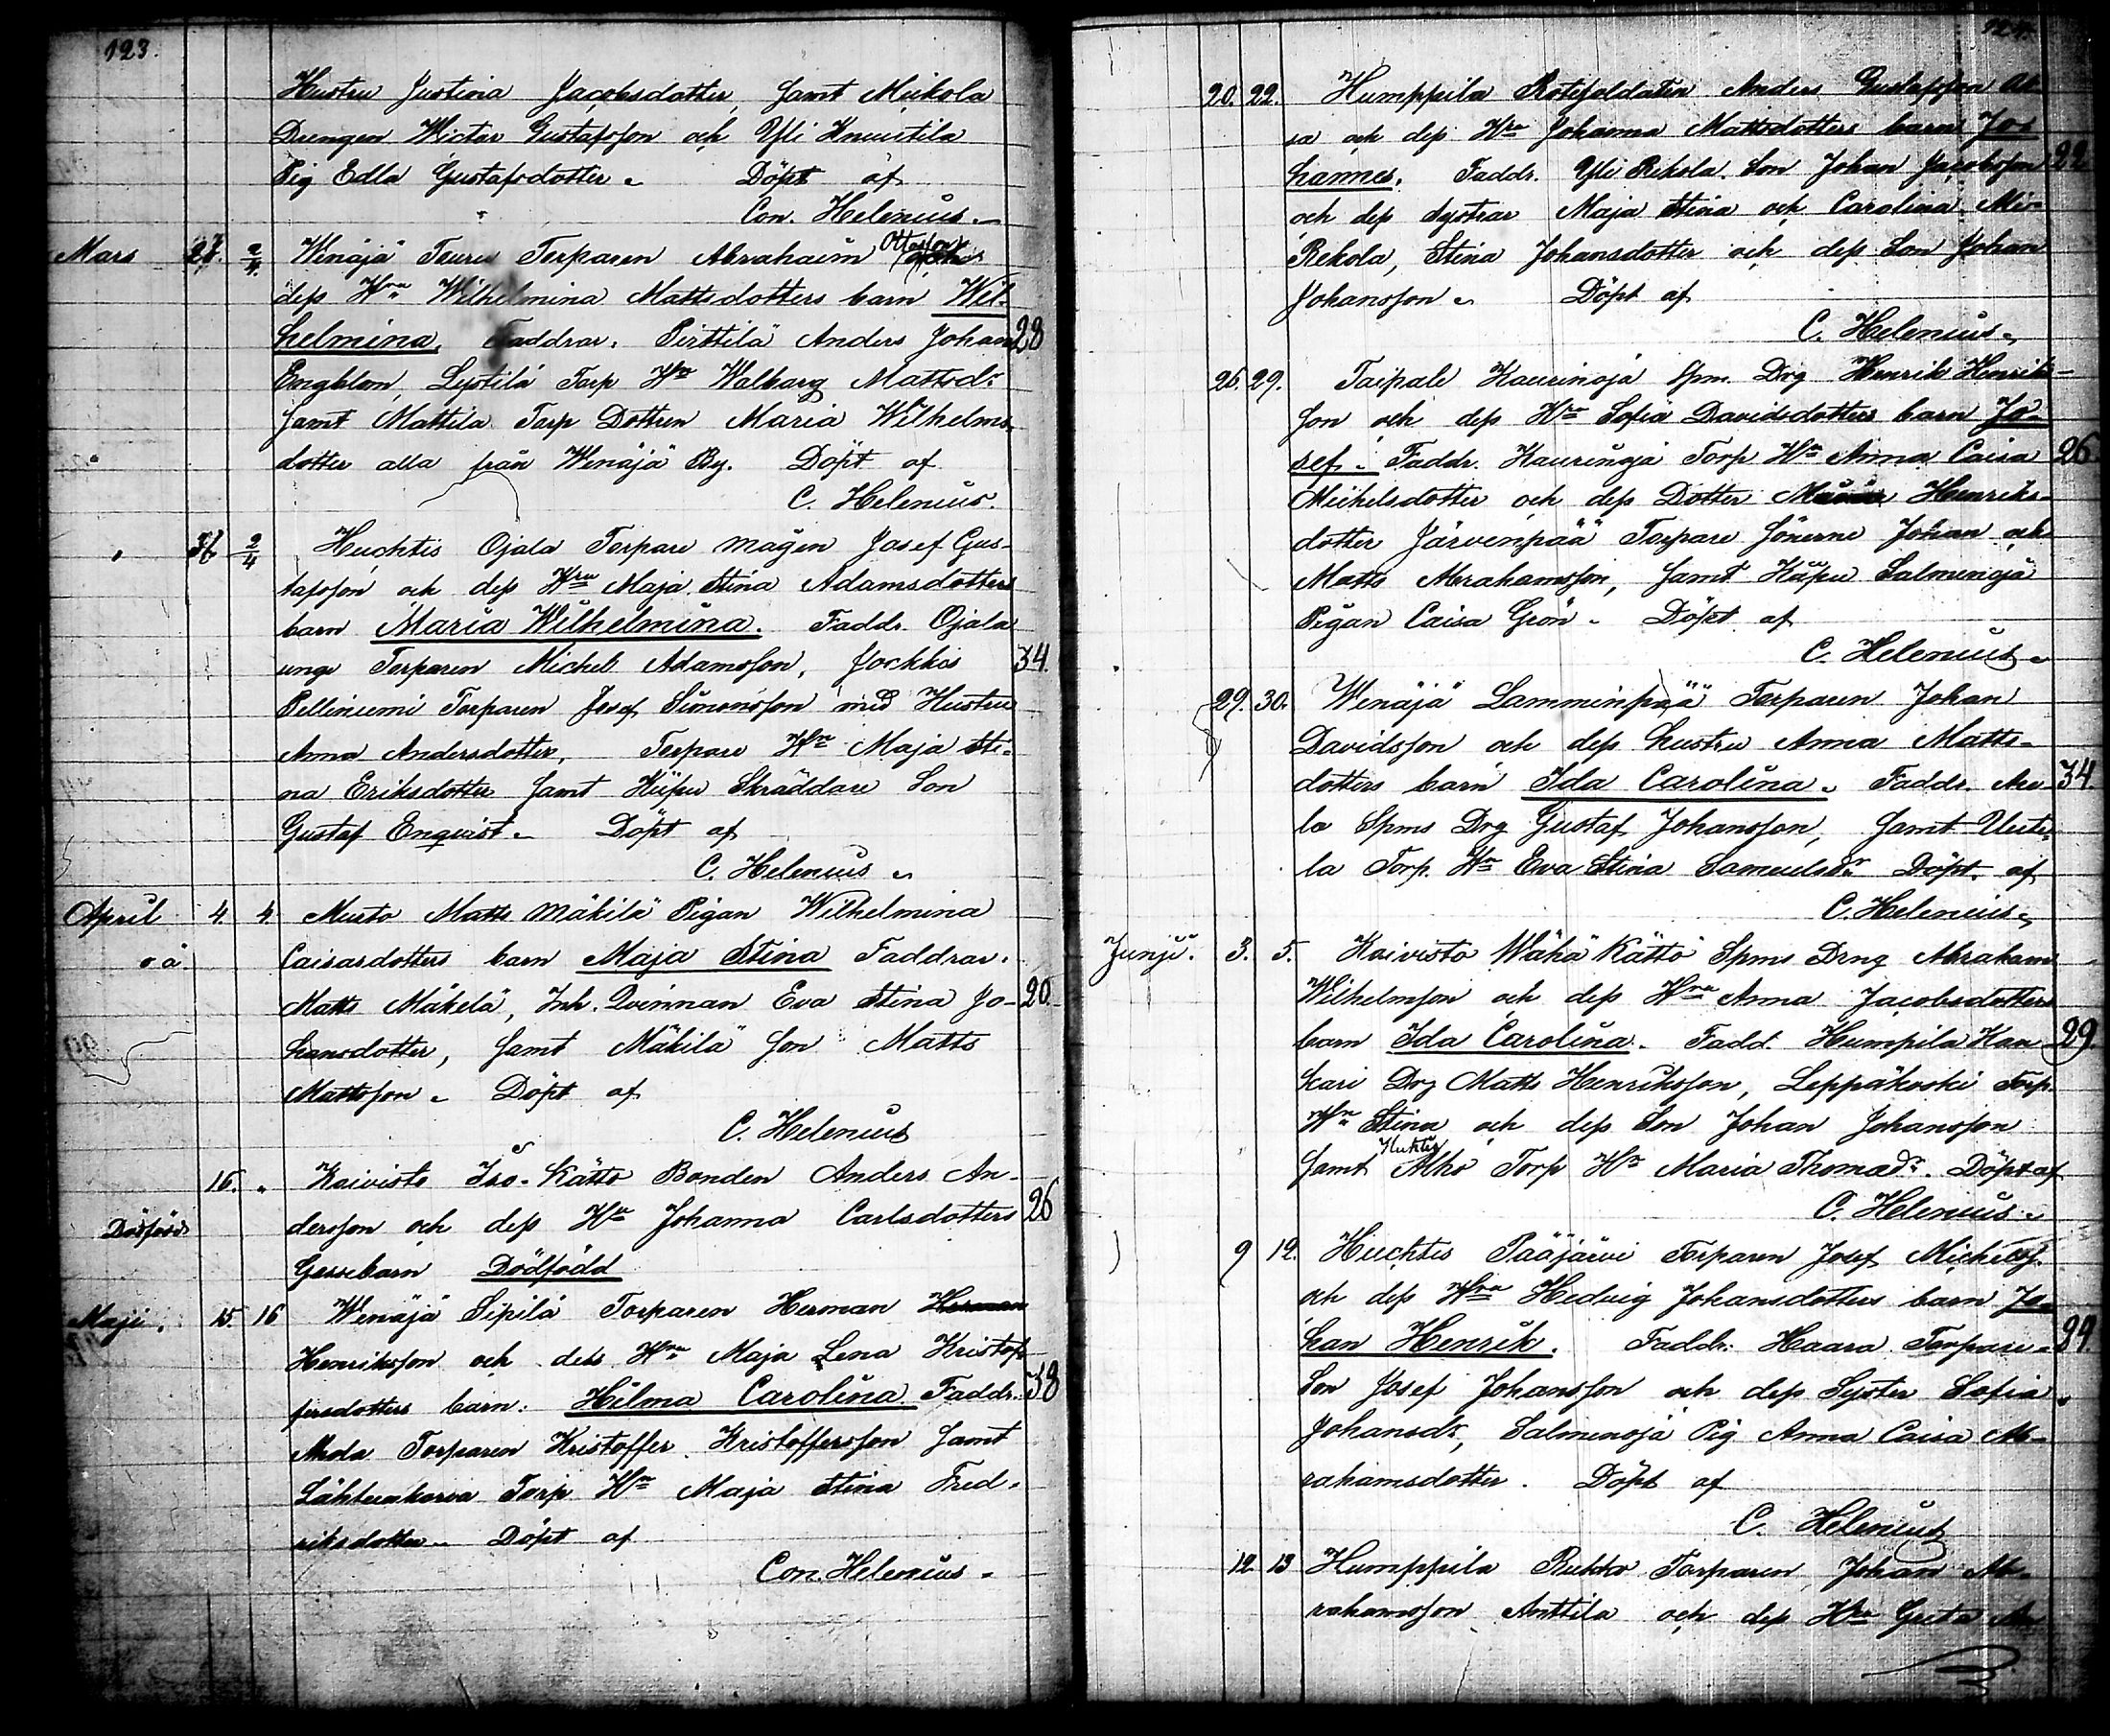 123.
Hustru Justina Jacobsdotter, samt Mickola
Drengen Wictor Gustafsson och Yli Knuutila
Pig Edla Gustafsdotter. Döpt af
Con. Helenius.
Mars 27 2/4 Wenäjä Torparen Abraham Ottosson
dess Hru Wilhelmina Mattsdotters barn Wil-
helmina. Faddrar. Pirttilä Anders Johan 28
Engblom, Torp Hu Walborg Mattsdr
samt Mattila Torp Dottren Maria Wilhelms-
dotter alla från Wenäjä By. Döpt af
C. Helenius.
2/4 Huchtis Ojala Torpare mågen Josef Gus-
tafsson och dess Hru Maja Stina Adamsdotters
barn Maria Wilhelmina. Faddr. Ojala
unge Torparen Michel Adamsson, Jockkis 34.
Pelliniemi Torparen Josef Simonsson med Hustru
Anna Andersdotter, Torpare Hu Maja Sti-
na Eriksdotter samt Skräddare Son
Gustaf Enqvist. Döpt af
C. Helenius.
April 4. 4. Murto Matts Mäkilä Pigan Wilhelmina
o ä. Caisasdotters barn Maja Stina Faddrar.
Matts Mäkelä, Inh. Qvinnan Eva Stina Jo- 20.
hansdotter, samt Mäkilä Son Matts
Mattsson. Döpt af
C. Helenius
16. " Koivisto Iso-Kättö Bonden Anders An-
dersson och dess Hu Johanna Carlsdotters 26
Dödfödd
Gossebarn Dödfödd
Maji. 15. 16 Wenäjä Sipilä Torparen Herman
Henriksson och dess Hru Maja Lena Kristof-
fersdotters barn. Hilma Carolina Faddr. 38
Torparen Kristoffer Kristoffersson samt
Torp Hu Maja Stina Fred-
riksdotter. Döpt af
Con. Helenius.
124.
20. 22. Humppila Rotesoldaten Anders Gustafsson
sa och dess Hru Johanna Mattsdotters barn Jo-
hannes. Faddr. Yli Rekola Son Johan Jacobsson 22
och dess systrar Maja Stina och Carolina
Rekola, Stina Johansdotter och dess Son Johan
Johansson. Döpt af
C. Helenius.
29. Taipale Kaurinoja Spm. Drg Henrik Henriks-
son och dess Hru Sofia Davidsdotters barn Jo-
sef. Faddr. Kaurinoja Torp Hu Anna Caisa 26
Michelsdotter och dess Dotter Henriks-
dotter Järvenpää Torpare Sönerne Johan och
Matts Abrahamsson, samt Salmenoja
Pigan Caisa Grön. Döpt af
C. Helenius.
29. 30. Wenäjä Lamminpää Torparen Johan
Davidsson och dess hustru Anna Matts-
dotters barn Ida Carolina. Faddr. 34.
la Spms Drg Gustaf Johansson, samt Uuti-
la Torp. Hu Eva Stina Samuelsdr Döpt. af
C. Helenius.
Junji. 3. 5. Koivisto Wähä Kättö Spms Drng Abraham
Wilhelmsson och dess Hru Anna Jacobsdotters
barn Ida Carolina. Fadd. Humpila Kan- 29.
kari Drg Matts Henriksson, Leppäkoski Torp.
Hu Stina och dess Son Johan Johansson
samt Huhtis Alho Torp Hu Maria Thomadr. Döpt af
C. Helenius.
9 12. Huchtis Pääjärvi Torparen Josef Michelsf.
och dess Hru Hedvig Johansdotters barn Jo-
han Henrik. Faddr. Haara Torpare- 29.
Son Josef Johansson och dess Syster Sofia
Johansdr, Salmenoja Pig Anna Caisa Ab-
rahamsdotter. Döpt af
C. Helenius
12. 13 Humppila Torparen, Johan Ab-
rahamsson Anttila och dess Hru Greta